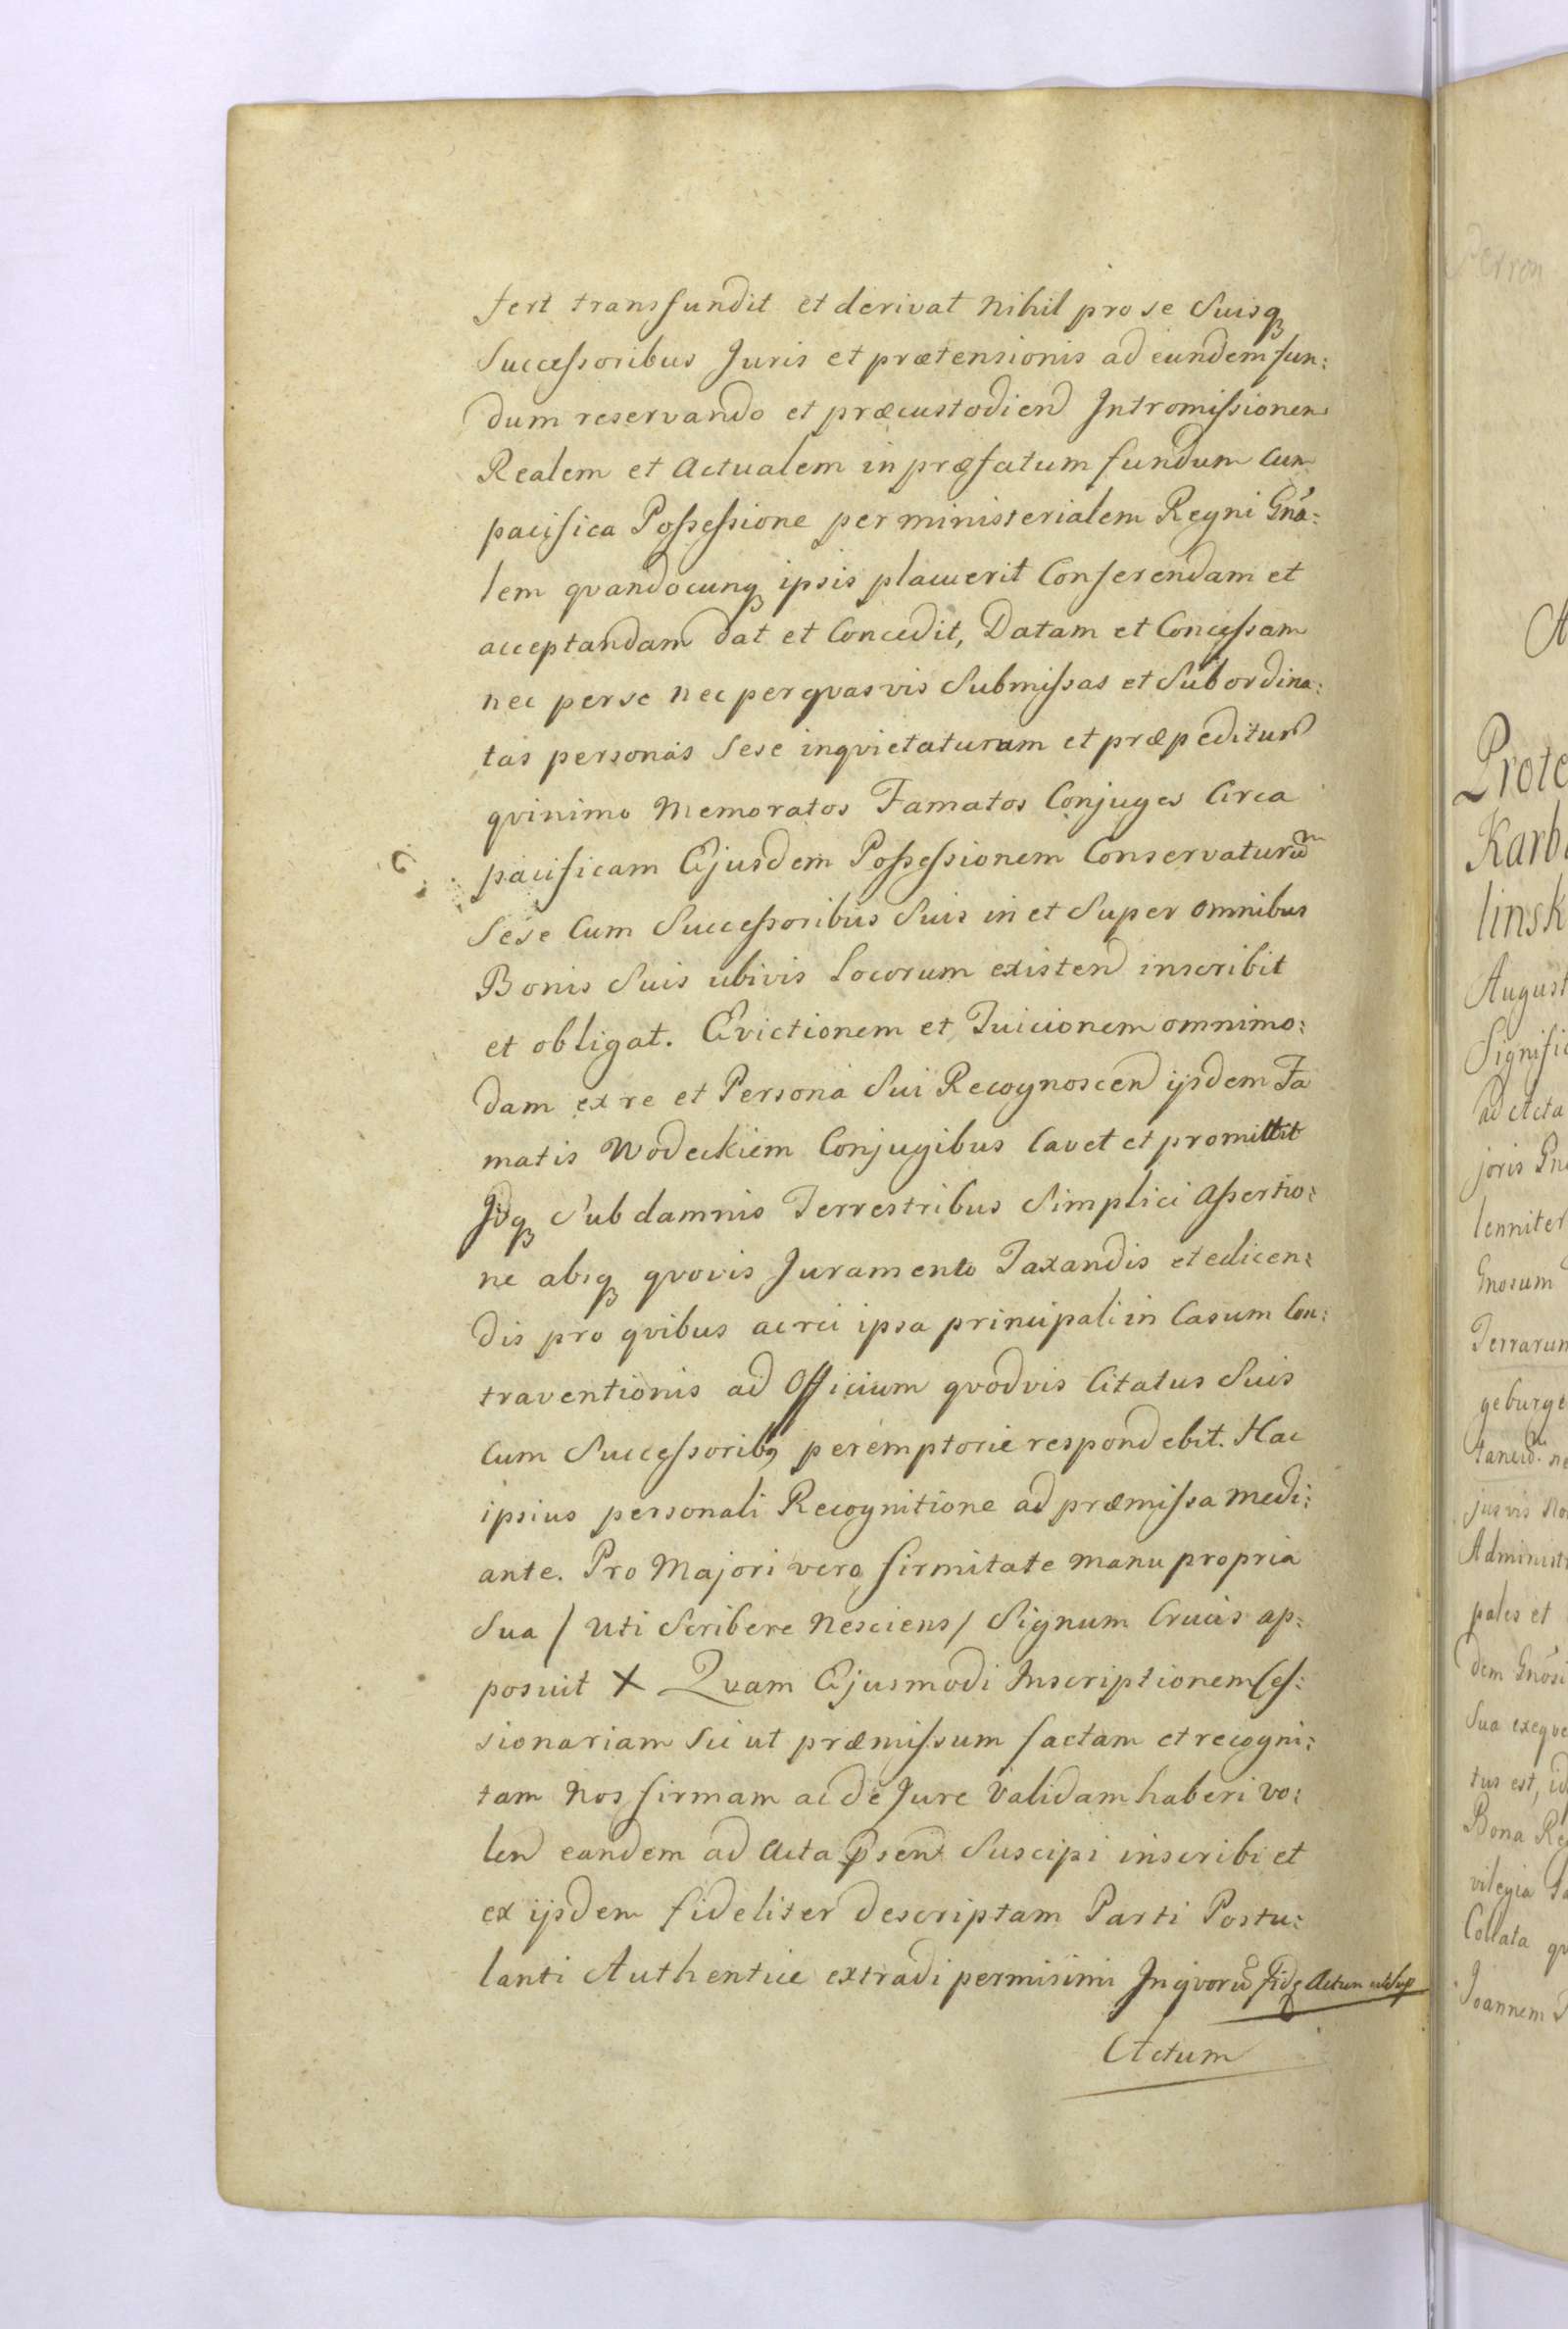 fert transfundit et derivat nihil pro se Suisq
Successoribus Juris et prætensionis ad eundem fun:
dum reservando et præcustodiend Intromissionem
Realem et Actualem in præfatum fundum Cum
pacifica Possessione per ministerialem Regni Gna:
lem qvandocunq ipsis placuerit Conferendam et
acceptandam dat et Concedit, Datam et Concessam
nec per se nec per qvasvis Submissas et Subordina:
tas personas Sese inqvietaturum et præpeditur
qvinimo Memoratos Famatos Conjuges Circa
pacificam Ejusdem Possessionem Conservaturum
Sese Cum Successoribus Suis in et Super omnibus
Bonis Suis ubivis Locorum existend inscribit
et obligat. Evictionem et Tuicionem omnimo:
dam ex re et Persona Sui Recognoscend ijsdem Fa
matis Wodeckiem Conjugibus Cavet et promittit
Idq Sub damnis Terrestribus Simplici Assertio:
ne absq qvovis Juramento Taxandis et edicen:
dis pro qvibus ac rei ipsa principali in Casum Con:
traventionis ad Officium qvodvis Citatus Suis
Cum Successoribq peremptorie respondebit. Hac
ipsius personali Recognitione ad præmissa Medi:
ante. Pro Majori vero firmitate manu propria
Sua / uti Scribere Nesciens / Signum Crucis ap:
posuit X Qvam Ejusmodi Inscriptionem Ces:
sionariam Sic ut præmissum factam et recogni:
tam Nos firmam ac de Jure Validam haberi vo:
len eandem ad Acta psent Suscipi inscribi et
ex ijsdem fideliter descriptam Parti Postu:
lanti Authentice extradi permisimi In qvoru fidē Actum ut Sup
Actum
Prote
Karb
linsk
August
Signific
ad Acta
joris Gn
lenniter
Gnosum
Terrarum
geburge
jusvis No
Administ
pales et
dem Gnosi
Sua exeqve
tus est, id
Bona Re
vilegia
Collata qv
Joannem